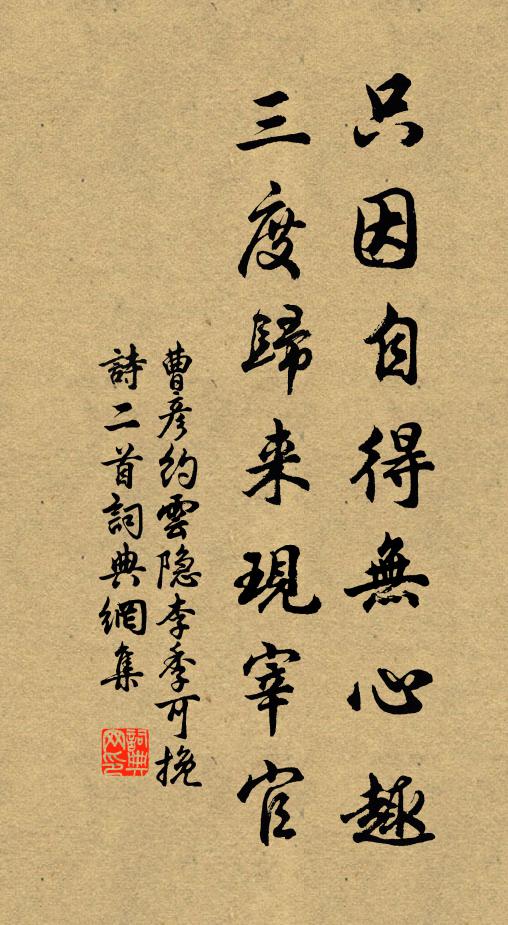 只因自得無心趣
三度歸来現宰官
曹彦約雲隐李季可挽
詩二首詞典網集
詞典网印